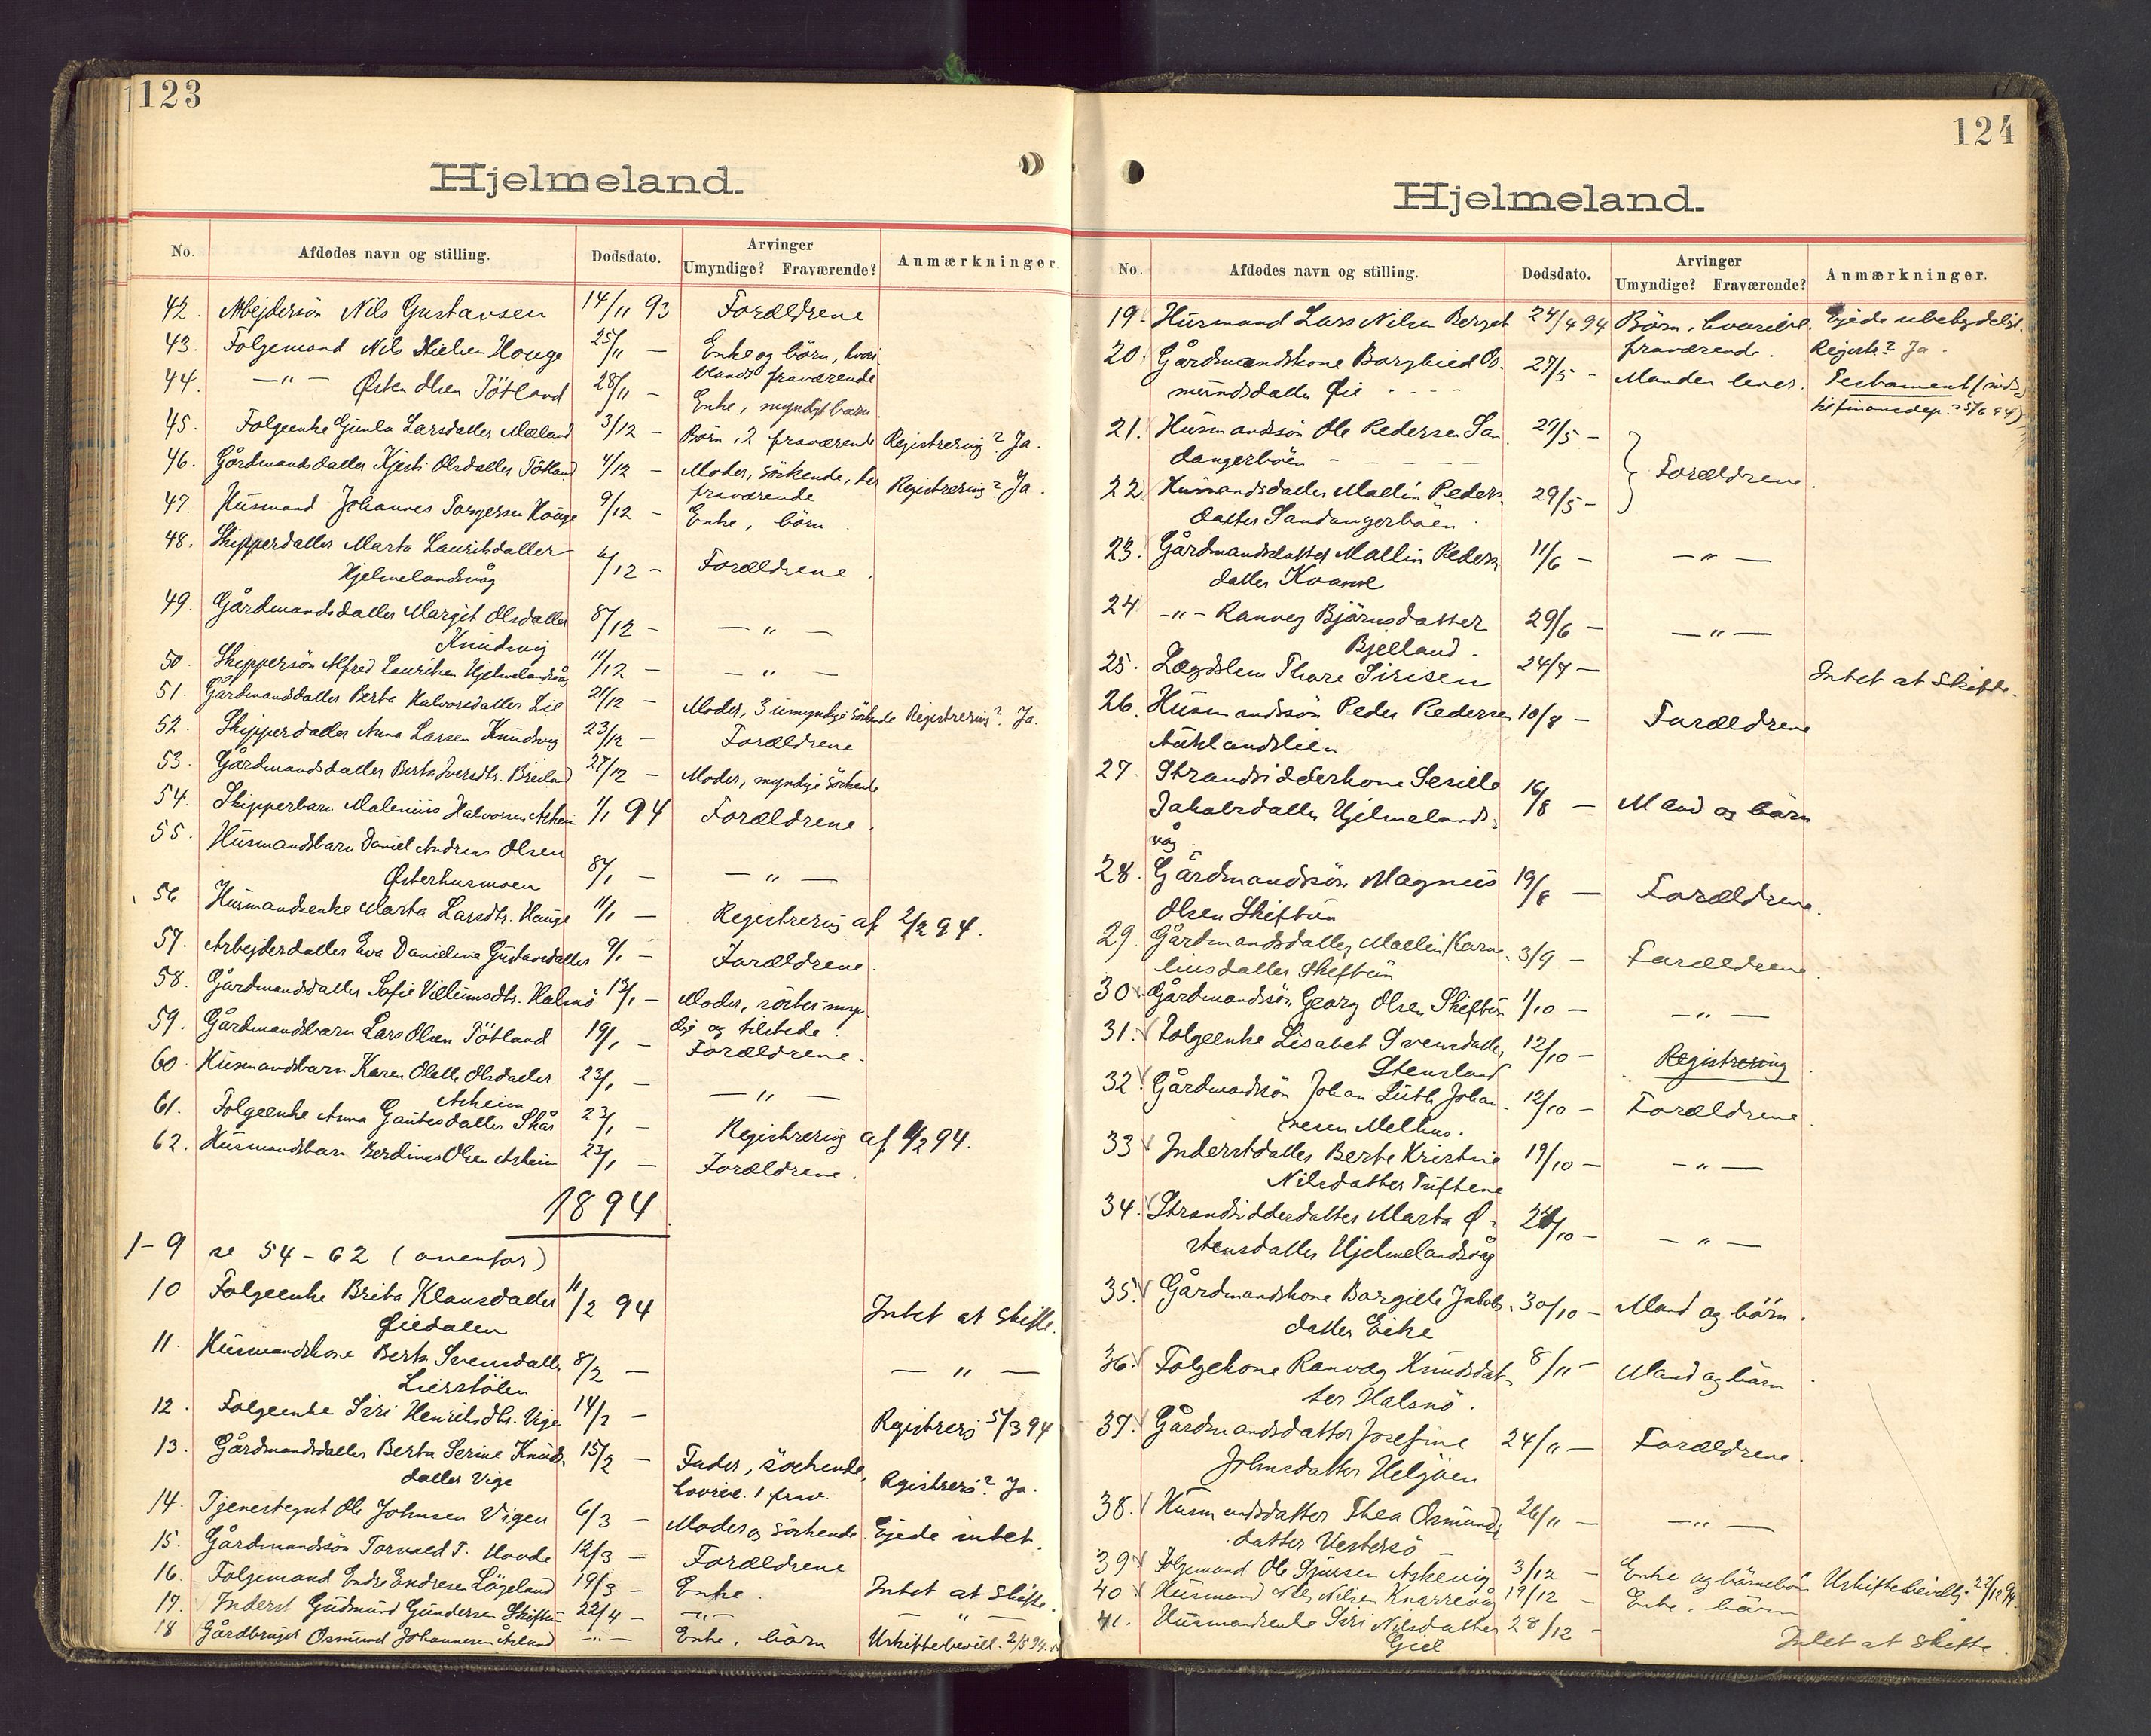 123
Hjelmeland.
No. Afdødes navn og stilling. Dødsdato. Arvinger Umyndige? Fraværende? Anmærkninger
42. Arbejdersön Nils Gustavsen 14/11 93 Forældrene
43. Folgemand Nils Nielsen Houge 25/11 — Enke og börn, hvori
blandt fraværende
44. —"— Østen Olsen Tötland 28/11 — Enke, myndigt barn.
45. Folgeenke Gunla Larsdatter Mæland 3/12 — Börn, 2 fraværende Registrering? Ja.
46. Gårdmandsdatter Kjersti Olsdatter Tötland 4/12 — Moder, söskende, her
fraværende Registrering? Ja.
47. Husmand Johannes Torgersen Houge 9/12 — Enke, börn.
48. Skipperdatter Marta Lauritsdatter
Hjelmelandsvåg 6/12 — Forældrene.
49. Gårdmandsdatter Margit Olsdatter
Knudsvig 8/12 — — " —
50. Skippersön Alfred Lauritsen Hjelmelandsvåg 11/12 — — " —
51. Gårdmandsdatter Berta Halvorsdatter Lie 21/12 — Moder, 3 umyndige söskende Registrering? Ja.
52. Skipperdatter Anna Larsen Knudsvig 23/12 — Forældrene
53. Gårdmandsdatter Berta Iversdtr. Breiland 27/12 — Moder, myndige söskende
54. Skipperbarn Malenius Halvorsen Askeim 1/1 94 Forældrene.
55. Husmandsbarn Daniel Andreas Olsen
Østerhusmoen 8/1 — — " —
56 Husmandsenke Marta Larsdtr. Hauge 11/1 — Registrering af 2/2 94.
57. Arbejderdatter Eva Danieline Gustavsdatter 9/1 — Forældrene.
58. Gårdmandsdatter Sofie Villumsdtr. Halsnö 13/1 — Moder, söster myn-
dig og tilstede.
59. Gårdmandsbarn Lars Olsen Tötland 19/1 — Forældrene.
60. Husmandsbarn Karen Olette Olsdatter
Askeim 23/1 — — " —
61. Folgeenke Anna Gautesdatter Skår 23/1 — Registrering af 4/2 94.
62. Husmandsbarn Berdines Olsen Askeim 23/1 — Forældrene.
1894.
1-9 se 54-62 (ovenfor)
10 Folgeenke Brita Klausdatter
Øiedalen 11/2 94 Intet at skifte.
11. Husmandskone Berta Svensdatter
Lierstölen 8/2 — — " —
12. Folgeenke Siri Henriksdtr. Vige 14/2 — Registrerës 5/3 94
13. Gårdmandsdatter Berta Serine Knuds-
datter Vige 15/2 — Fader, söskende,
hvoribl. 1 frav. Registrerës? Ja.
14. Tjenestegut Ole Johnsen Vigen 6/3 — Moder og söskende Ejede intet.
15. Gårdmandsön Torvald T. Hovde 12/3 — Forældrene
16. Folgemand Endre Endresen Lögeland 19/3 — Enke. Intet at skifte.
17. Inderst Gudmund Gundersen Skiftun 22/4 — —"— — " —
18 Gårdbruger Osmund Johannesen Åsland —"— Enke, börn Uskiftebevill. 2/5 94.
124
Hjelmeland.
No. Afdødes navn og stilling. Dødsdato. Arvinger Umyndige? Fraværende? Anmærkninger.
19. Husmand Lars Nilsen Berget 24/4 94 Börn, hvoribl. Ejede ubetydeligt.
fraværende. Registr? Ja.
20. Gårdmandskone Borghild Os-
mundsdatter Øie - - 27/5 - Manden lever. Testament (inds.
til finansdep. 25/6 94)
21. Husmandssön Ole Pedersen San-
dangerböen - 29/5 —
22. Husmandsdatter Mallin Peders-
datter Sandangerböen. 29/5 — } Forældrene.
23. Gårdmandsdatter Mallin Peders-
datter Kvame 11/6 — — " —
24 —"— Ranveg Bjørnsdatter
Bjelland. 29/6 — — " —
25. Lægdslem Thore Sirisen 24/7 — Intet at skifte.
26. Husmandssön Peder Pedersen
Auklandslien 10/8 — Forældrene
27. Strandsidderkone Serille
Jakobsdatter Hjelmelands-
våg 16/8 — Mand og börn
28. Gårdmandsön Magnus
Olsen Skiftun 19/8 — Forældrene.
29. Gårdmandsdatter Mallin Korne-
liusdatter Skiftun 3/9 — Forældrene.
30. Gårdmandssön Georg Olsen Skiftun 1/10 — — " —
31. Folgeenke Lisabet Svensdatter
Stensland 12/10 — Registrering.
32. Gårdmandsön Johan Luth Johan-
nesen Melhus. 12/10 — Forældrene.
33 Inderstdatter Berte Kristine
Nilsdatter Tuftene 19/10 — — " —
34. Strandsidderdatter Marta Ø-
stensdatter Hjelmelandsvåg 28/10 — — " —
35. Gårdmandskone Borgille Jakobs-
datter Eike 30/10 — Mand og börn.
36. Folgekone Ranvæg Knudsdat-
ter Halsnö. 8/11 — Mand og börn.
37. Gårdmandsdatter Josefine
Johnsdatter Helgöen 24/11 — Forældrene.
38. Husmandsdatter Thea Osmunds-
datter Vestersö 26/11 — — " —
39 Folgemand Ole Sjursen Askevig 3/12 — Enke og börnebörn Uskiftebevillg. 22/12 94.
40 Husmand Nils Nilsen Knarrevåg 19/12 — Enke. börn
41. Husmandsenke Siri Nilsdatter
Giel 28/12 — Intet at skifte.